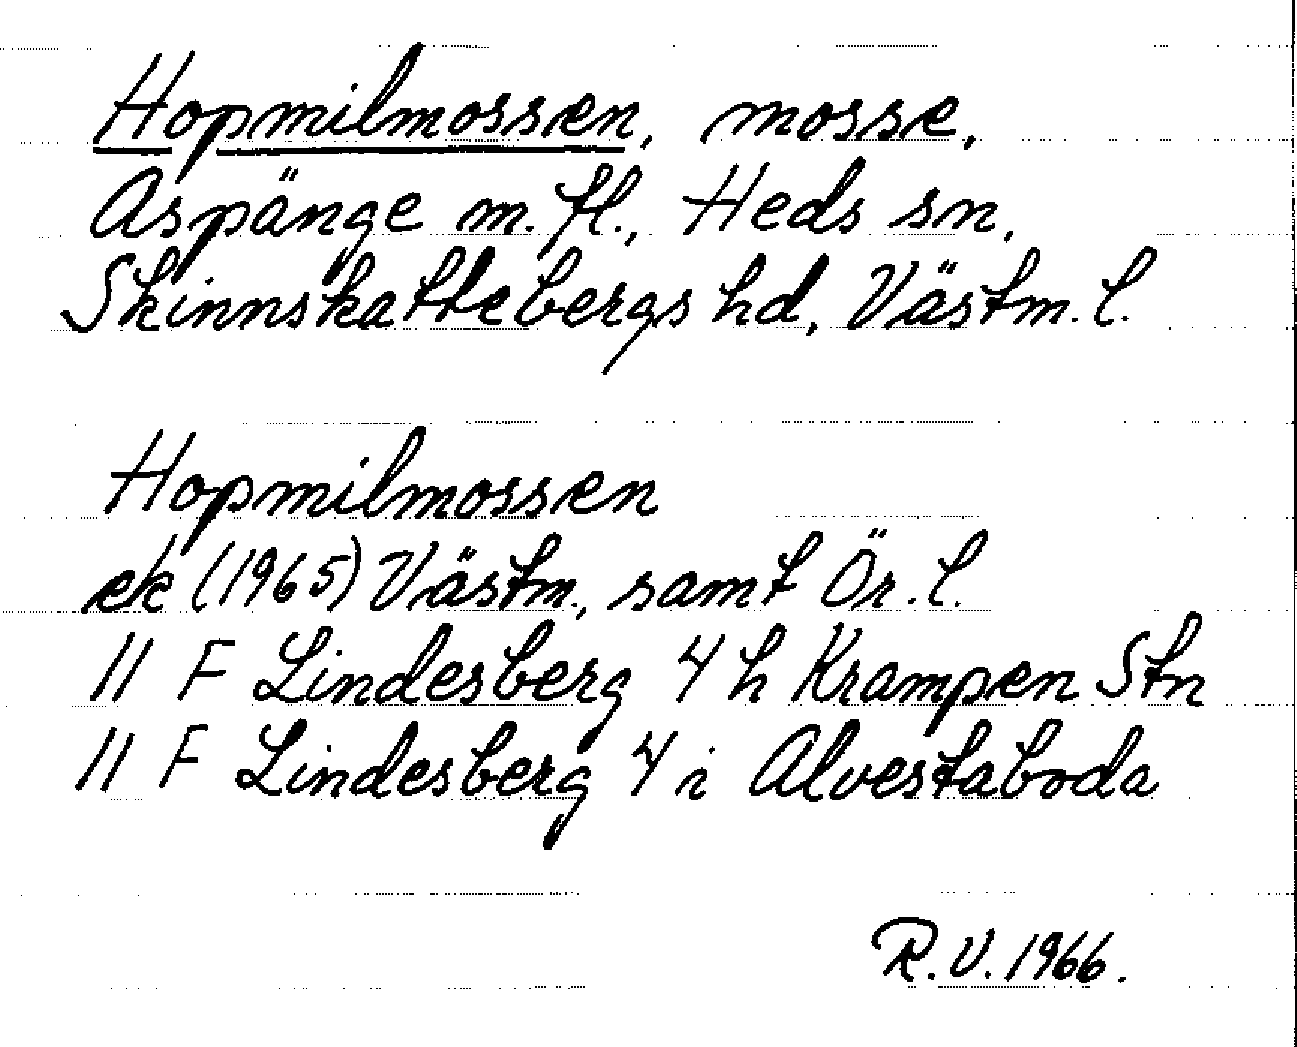 Hopmilmossen, mosse,
Aspänge m. fl., Heds sn,
Skinnskattebergs hd, Västm. l.
Hopmilmossen
ek (1965) Västm., samt Ör. l.
11 F Lindesberg 4 h Krampen Stn
11 F Lindesberg 4 i Alvestaboda
R. V. 1966.